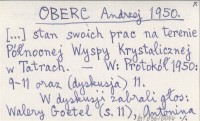 OBERC Andrzej 1950.
[...] stan swoich prac na terenie
Północnej Wyspy Krystalicznej
w Tatrach. — W: Protokół 1950:
9-11 oraz (dyskusja) 11.
W dyskusji zabrali głos:
Walery Goetel (s. 11), Antonina